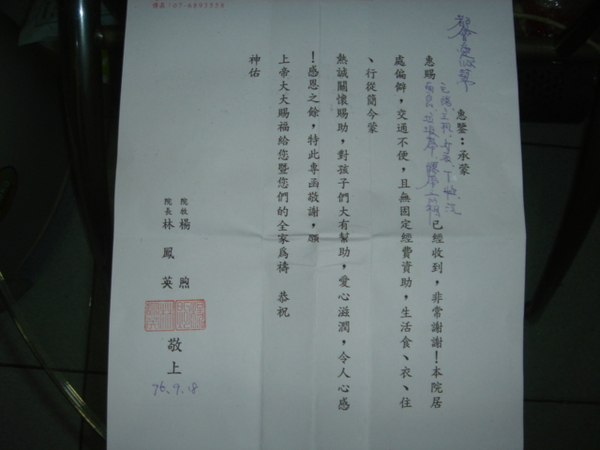 傳真：07-6893530
惠鑒：承蒙
惠賜
已經收到，非常謝謝！本院居
處偏僻，交通不便，且無固定經費資助，生活食、衣、住
、行從簡今蒙
熱誠關懷賜助，對孩子們大有幫助，愛心滋潤，令人心感
！感恩之餘，特此專函敬謝，願
上帝大大賜福給您暨您們的全家為禱 恭祝
神佑
院牧楊 煦
院長林鳳英
敬上
76.9.18